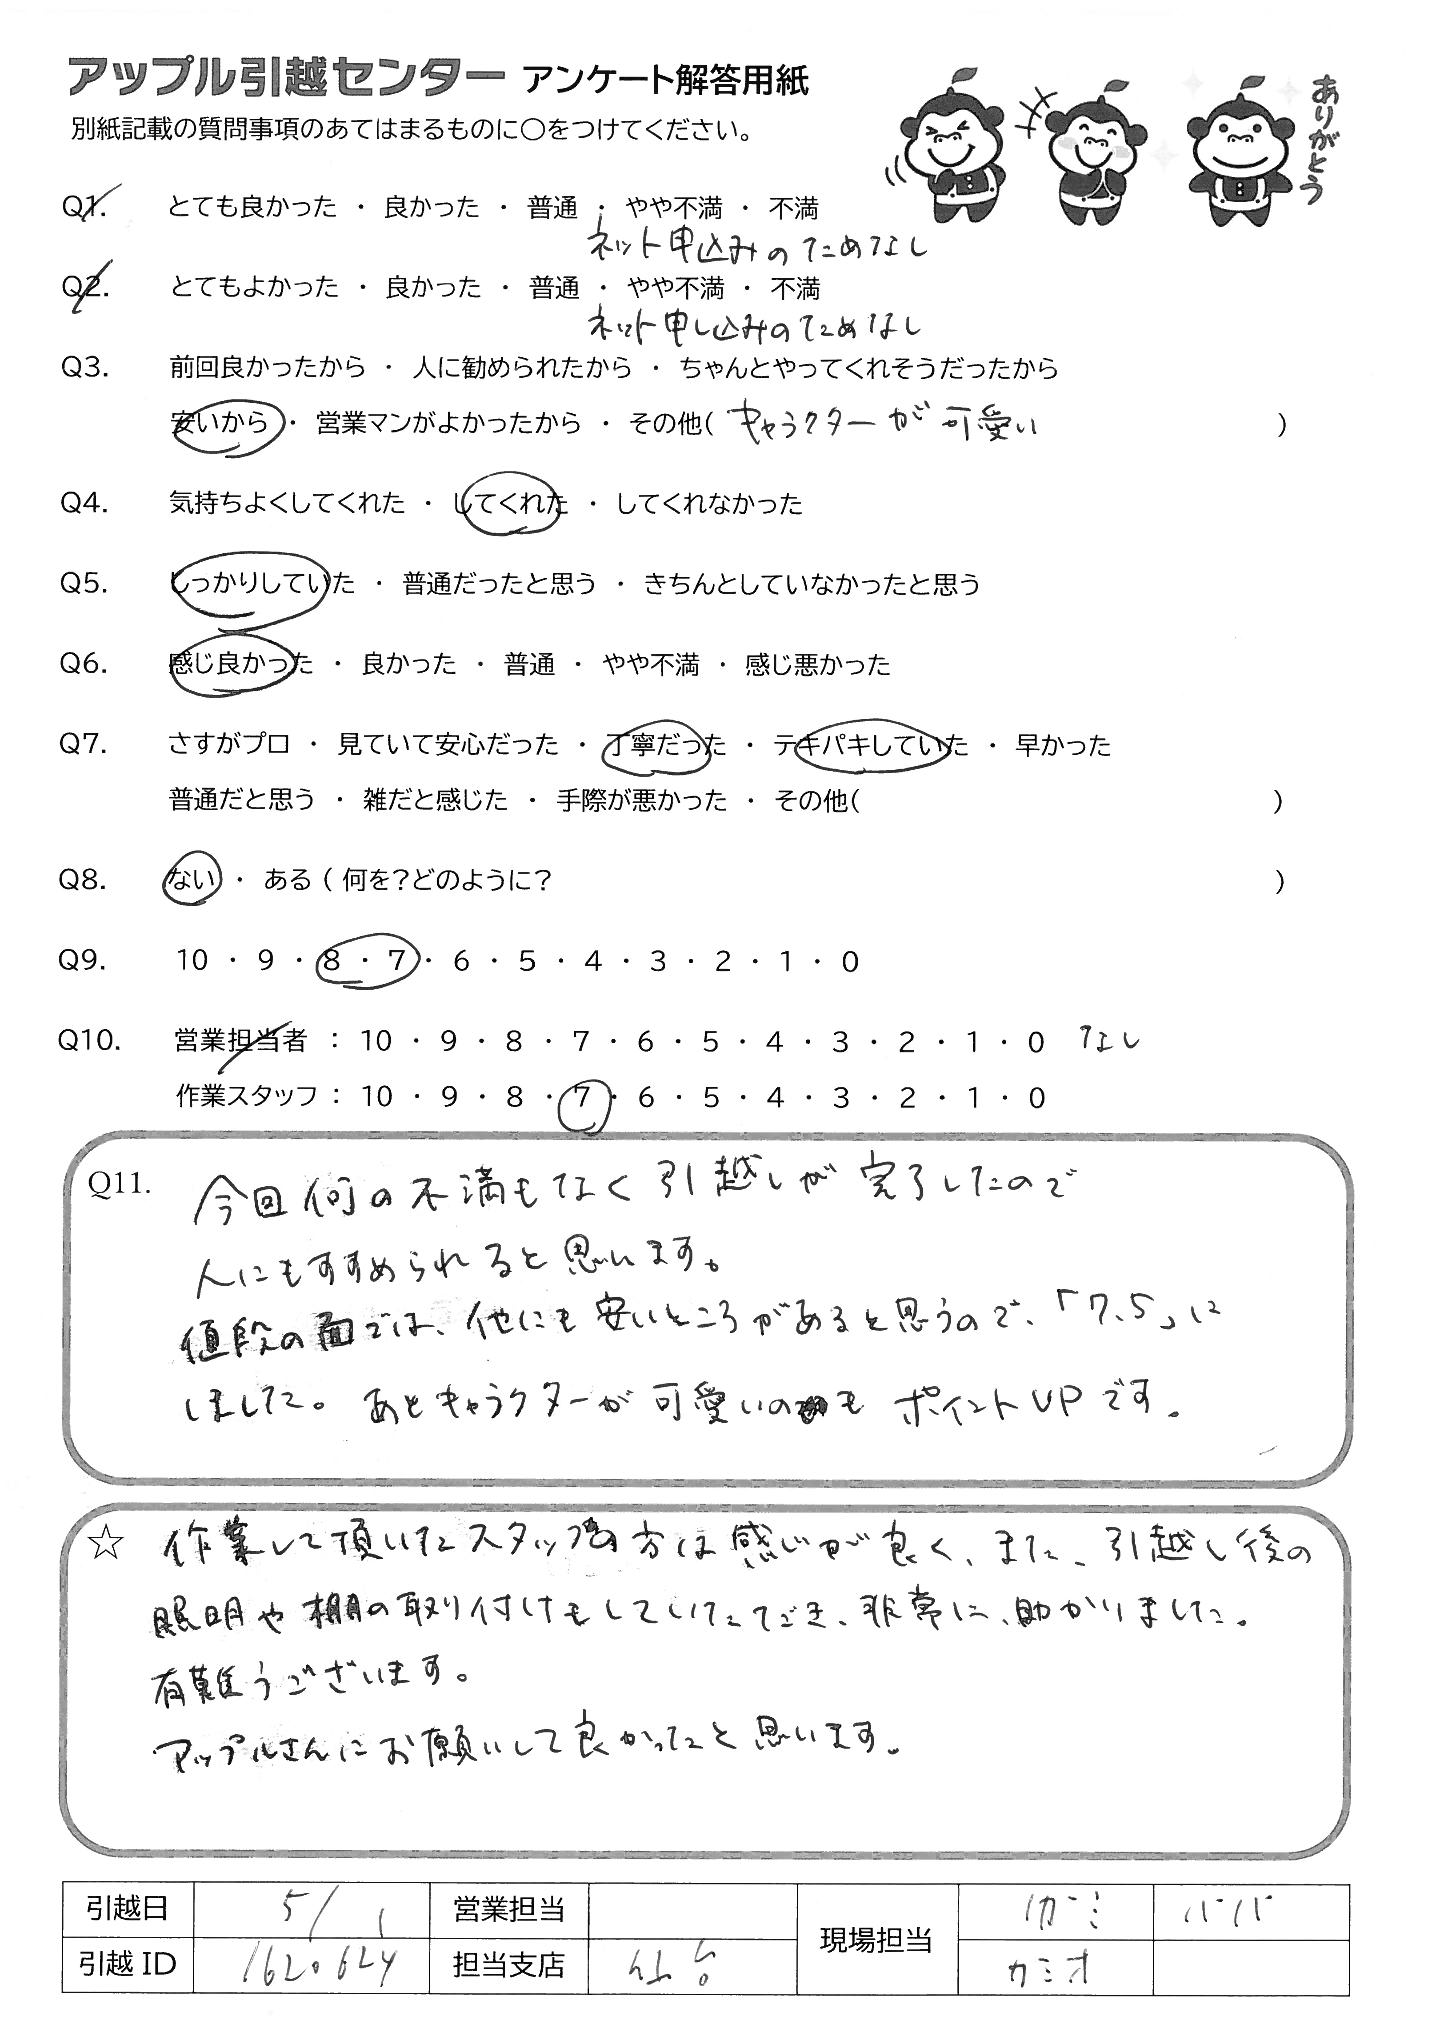 アップル引越センター アンケート解答用紙
別紙記載の質問事項のあてはまるものに○をつけてください。
ありがとう
Q1. とても良かった ・ 良かった ・ 普通 ・ やや不満 ・ 不満
ネット申込みのためなし
Q2. とてもよかった ・ 良かった ・ 普通 ・ やや不満 ・ 不満
ネット申し込みのためなし
Q3. 前回良かったから ・ 人に勧められたから ・ ちゃんとやってくれそうだったから
安いから ・ 営業マンがよかったから ・ その他( キャラクターが可愛い )
Q4. 気持ちよくしてくれた ・ してくれた ・ してくれなかった
Q5. しっかりしていた ・ 普通だったと思う ・ きちんとしていなかったと思う
Q6. 感じ良かった ・ 良かった ・ 普通 ・ やや不満 ・ 感じ悪かった
Q7. さすがプロ ・ 見ていて安心だった ・ 丁寧だった ・ テキパキしていた ・ 早かった
普通だと思う ・ 雑だと感じた ・ 手際が悪かった ・ その他( )
Q8. ない ・ ある ( 何を?どのように? )
Q9. 10 ・ 9 ・ 8 ・ 7 ・ 6 ・ 5 ・ 4 ・ 3 ・ 2 ・ 1 ・ 0
Q10. 営業担当者 : 10 ・ 9 ・ 8 ・ 7 ・ 6 ・ 5 ・ 4 ・ 3 ・ 2 ・ 1 ・ 0 なし
作業スタッフ : 10 ・ 9 ・ 8 ・ 7 ・ 6 ・ 5 ・ 4 ・ 3 ・ 2 ・ 1 ・ 0
Q11. 今回何の不満もなく引越しが完了したので
人にもすすめられると思います。
値段の面では、他にも安いところがあると思うので、「7.5」に
しました。あとキャラクターが可愛いのも ポイントUPです。
☆ 作業して頂いたスタッフの方は感じが良く、また、引越し後の
照明や棚の取り付けもしていただき、非常に、助かりました。
有難うございます。
アップルさんにお願いして良かったと思います。
引越日 5/1 営業担当 現場担当 カミ ババ
引越ID 1620624 担当支店 仙台 カミオ